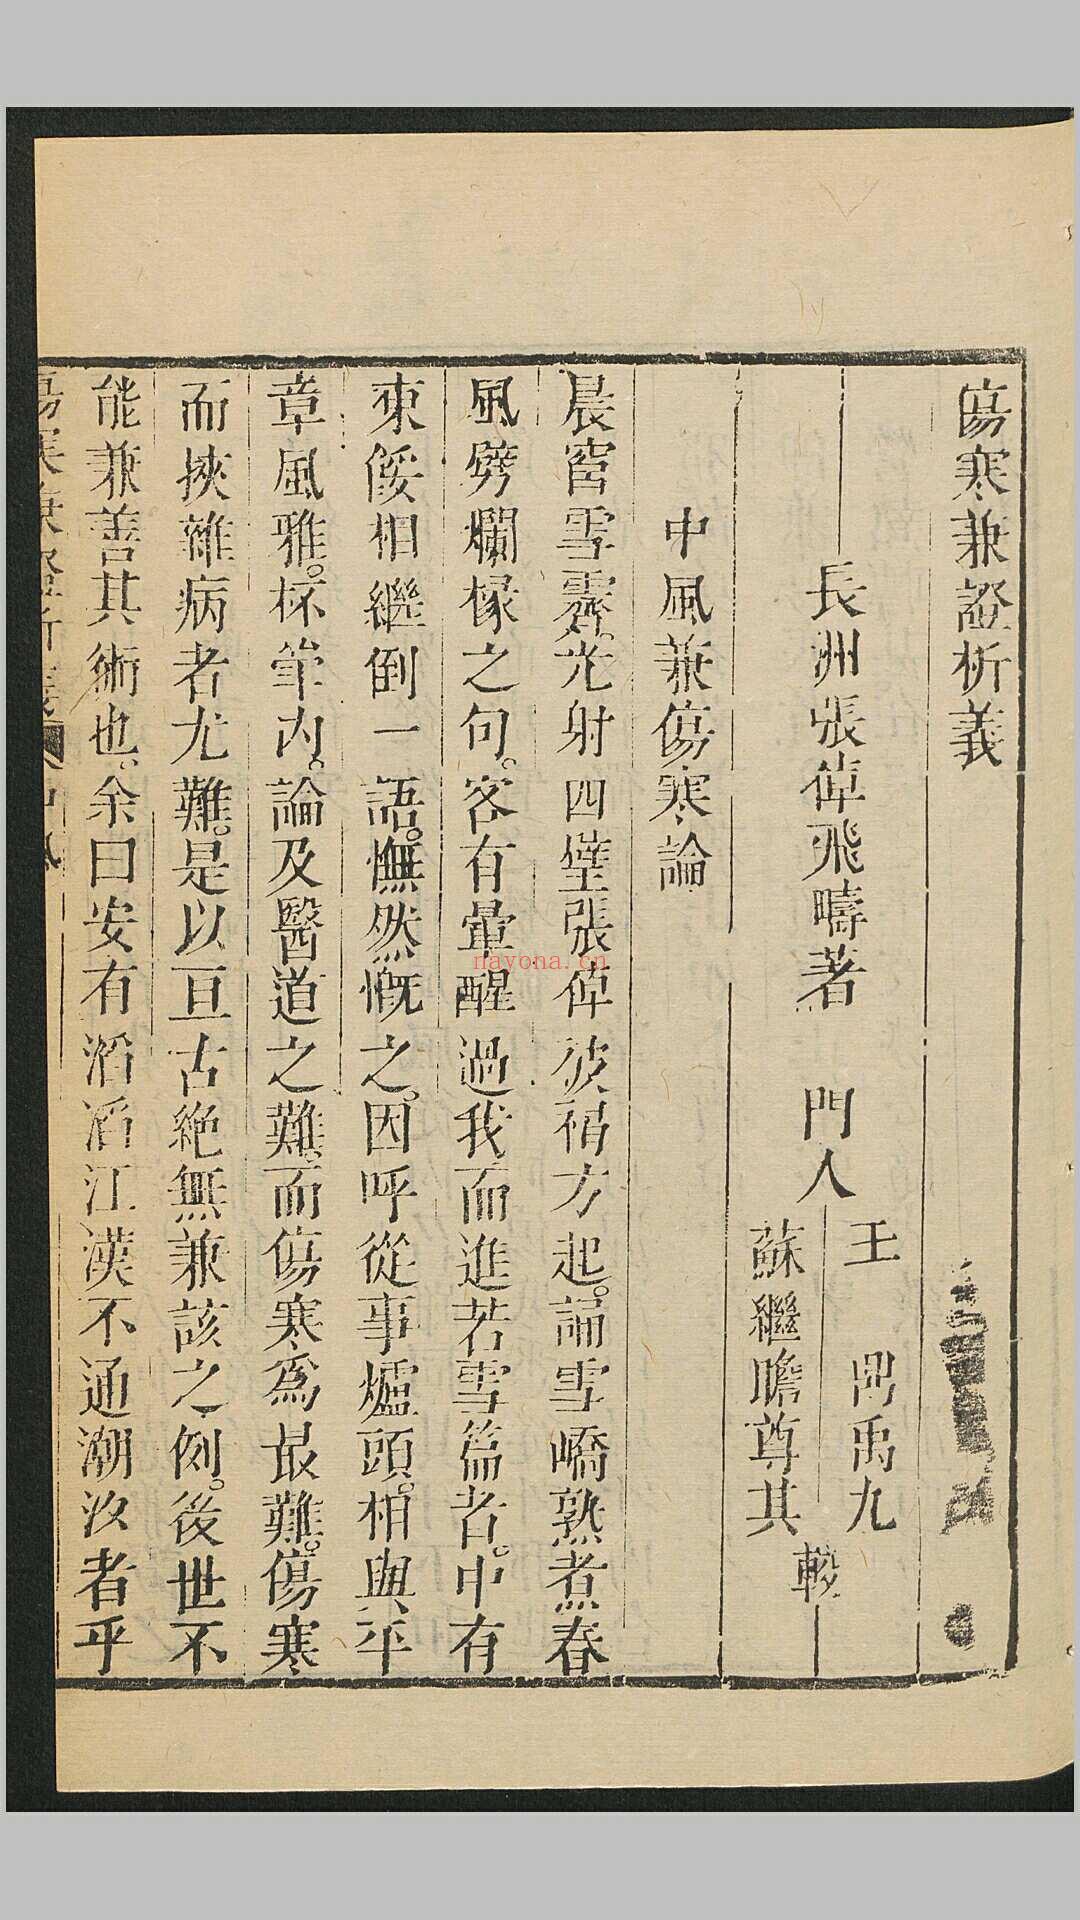 傷寒兼證析義
長洲張倬飛疇著　門人
王　昌禹九
蘇繼瞻尊其
較
中風兼傷寒論
晨窗雪霽光射四壁張倬披褐方起誦雪嶠熟煮春
風劈爛椽之句客有暈醒過我而進若雪篇者中有
東倭相繼倒一語憮然慨之因呼從事爐頭相與平
章風雅杯箸內論及醫道之難而傷寒爲最難傷寒
而挾雜病者尤難是以亘古絶無兼該之例後世不
能兼善其術也余曰安有滔滔江漢不通潮汐者乎
傷寒兼證析義　中風
nayona.cn